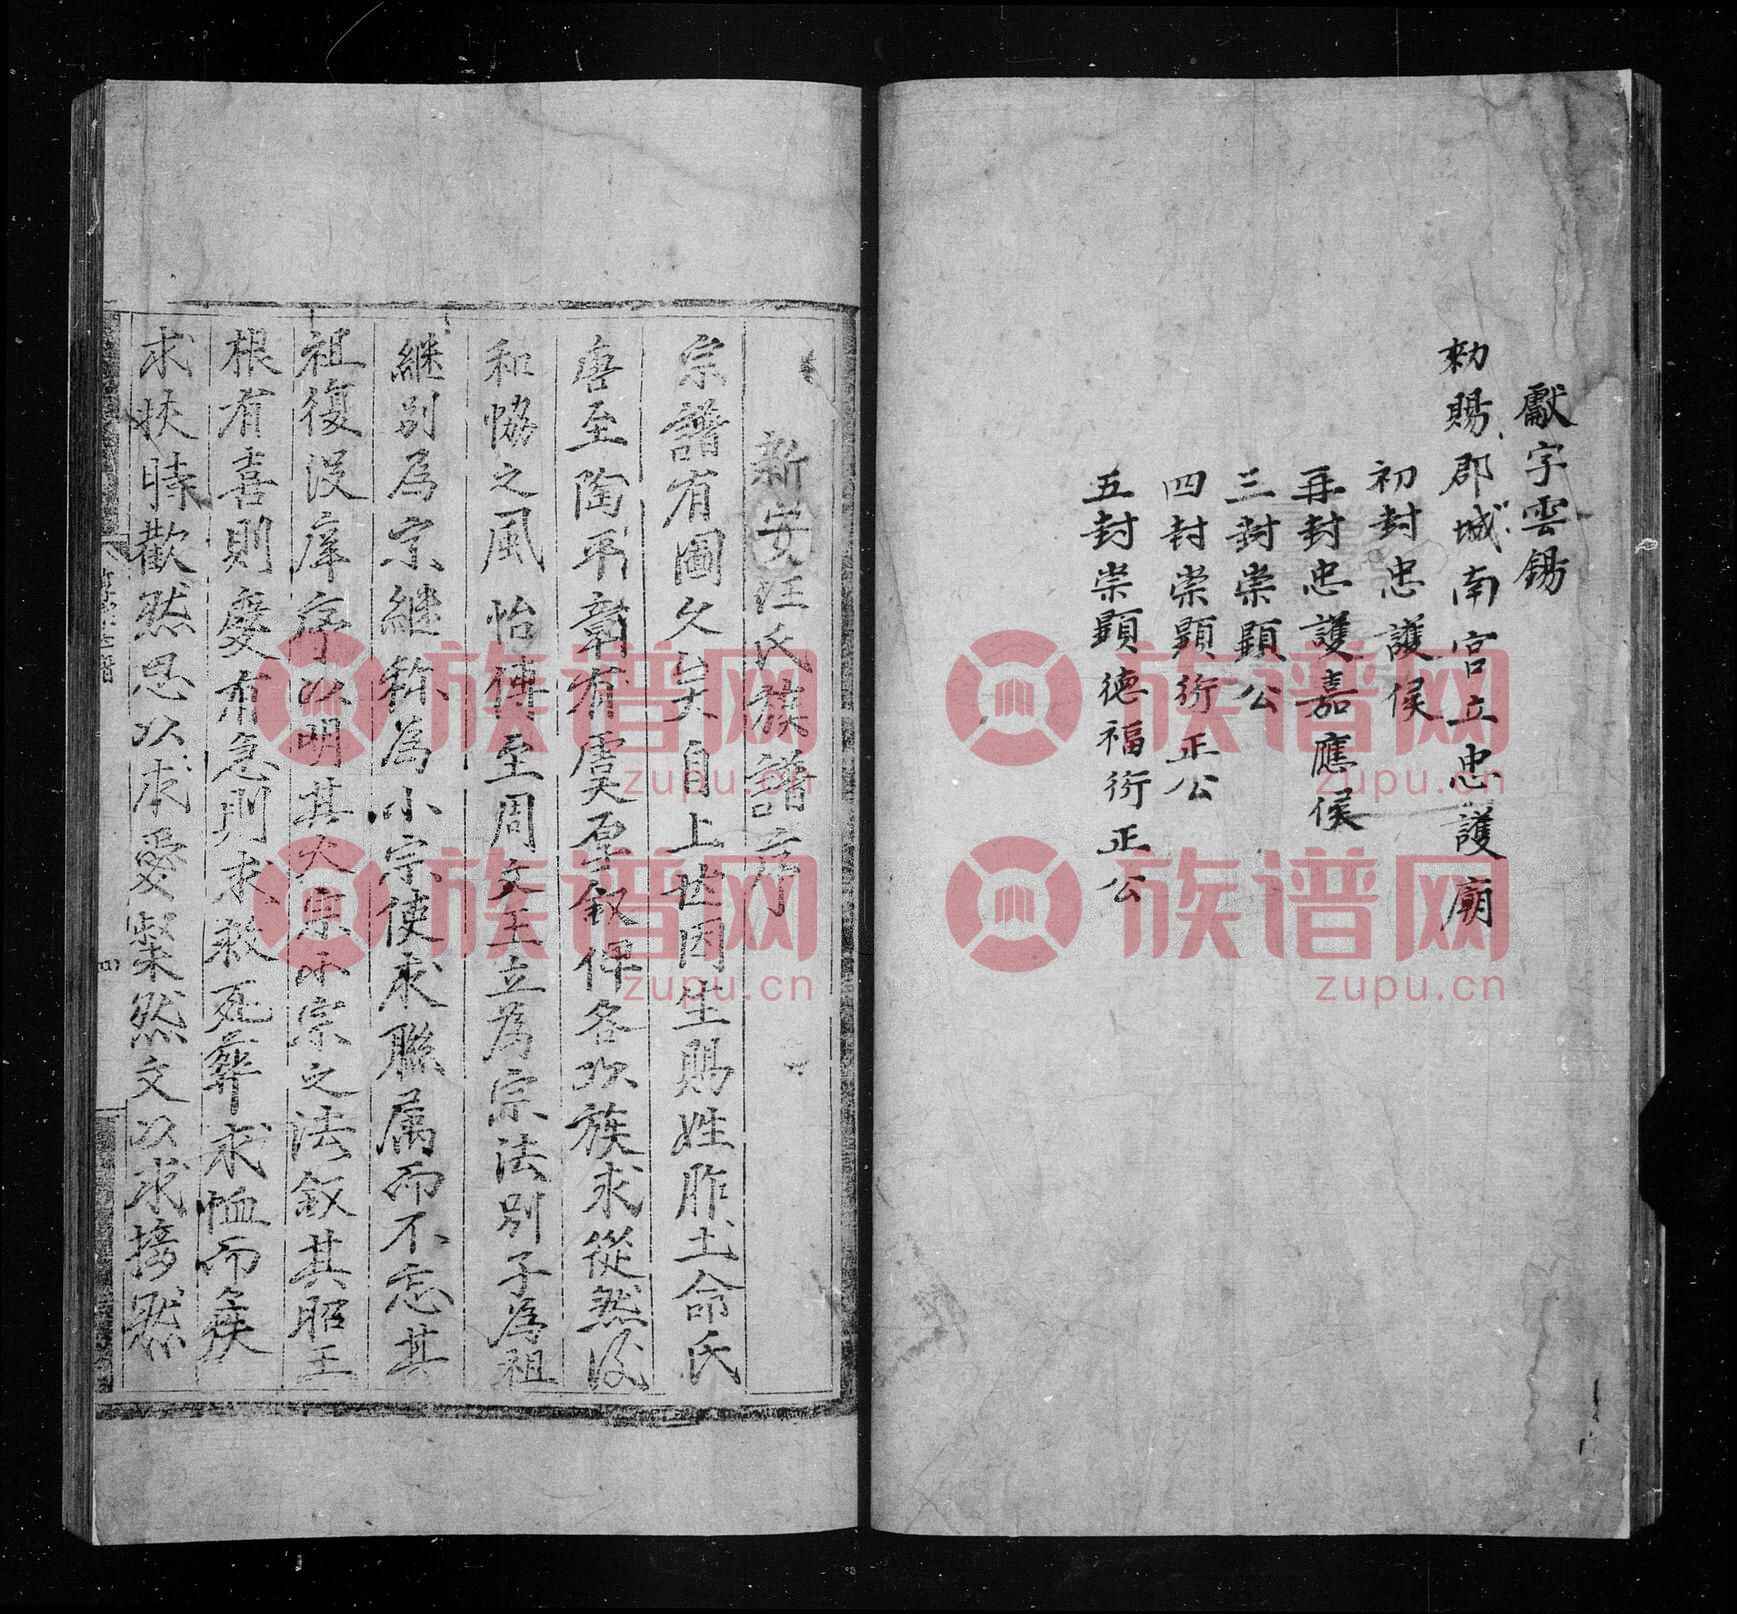 獻字雲錫
勑賜郡城南宮立忠護廟
初封忠護侯
再封忠護嘉應侯
三封崇顯公
四封崇顯衍正公
五封崇顯德福衍正公
新安汪氏族譜序
宗譜有圖久矣自上世因生賜姓胙土命氏
唐至陶平章有虞聖叙俾各次族求從然後
和協之風怡傳至周文王立為宗法別子為祖
継別為宗継称為小宗使求聯属而不忘其
祖復設庠序以明其大宗小宗之法叙其昭王
根有喜則慶有急則求救死葬求恤而疾
求扶時歡然恩以求愛粲然文以求接然
族谱网
zupu.cn
族谱网
zupu.cn
族谱网
zupu.cn
族谱网
zupu.cn